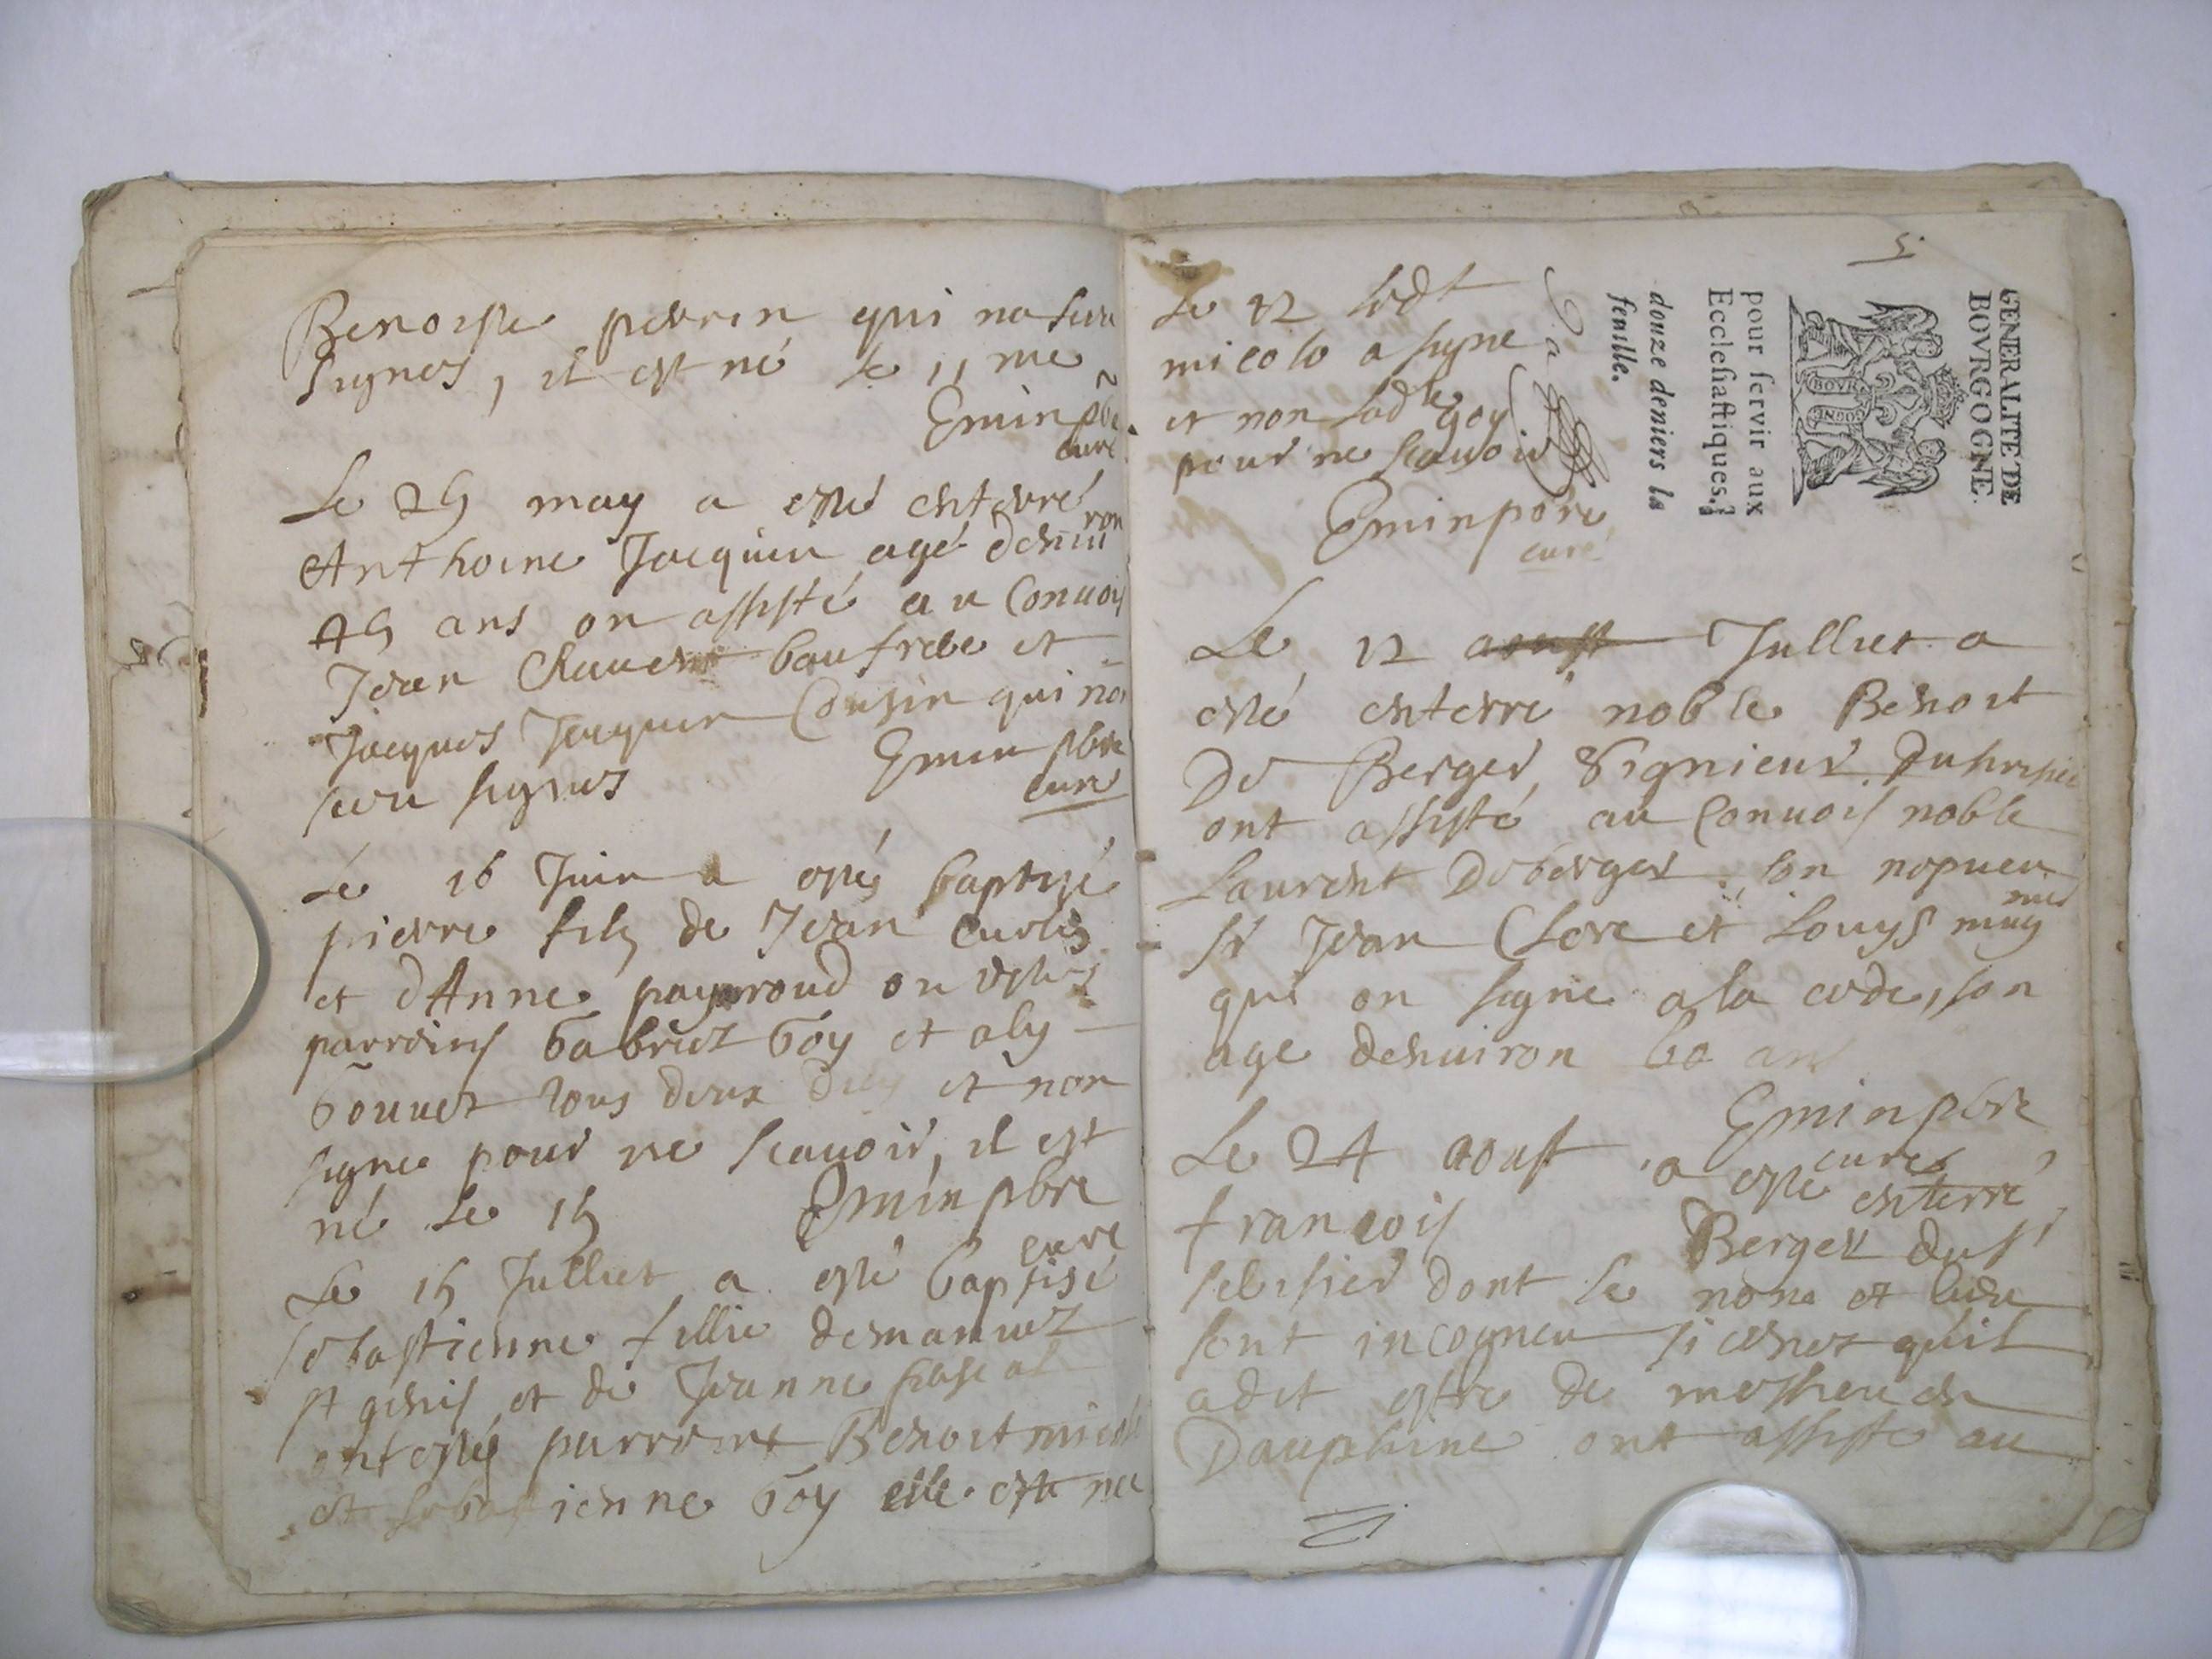 Benoiste perrin qui na sceu
signer, il est né le 11 me
Emin pbre
curé
Le 25 may a esté enterré
Anthoine Jacquin agé denuiron
45 ans on assisté au Conuoy
Jean Chauent baufrere et
Jacques Jacquin Cousin qui nōt
sceu signer Emin pbre
curé
Le 16 Juin a esté baptisé
pierre filz de Jean
et dAnne payaroud on estes
parrains Gabriel Goy et aly
Gouuet tous deux et non
signe pour ne scauoir, il est
né le 15 Emin pbre
curé
Le 15 Julliet a esté baptisé
sebastienne fillie demanuel
st genis et de Jeanne
ont estes parrains Benoit micolo
et sebastienne Goy elle est nee
5
Le 12 ledt
micolo a signe
et non ladte goy
pour ne scauoir
Emin pbre
curé
GENERALITE DE
BOVRGOGNE.
BOVR
GOGNE
pour servir aux
Ecclesiastiques.
douze deniers la
feuille.
Le 12 aoust Julliet a
esté enterré noble Benoit
De Berger, Signieur
ont assisté au Conuois noble
Laurent Deberger son nepueu
sr Jean Clere et Louys
qui on signe a la cede, son
age denuiron 60 ans
Emin pbre
curé
Le 24 aoust a esté enterré
francois Berger du sr
dont le nom et lieu
sont incogneu si cenest quil
a dit estre de en
Dauphine ont assisté au